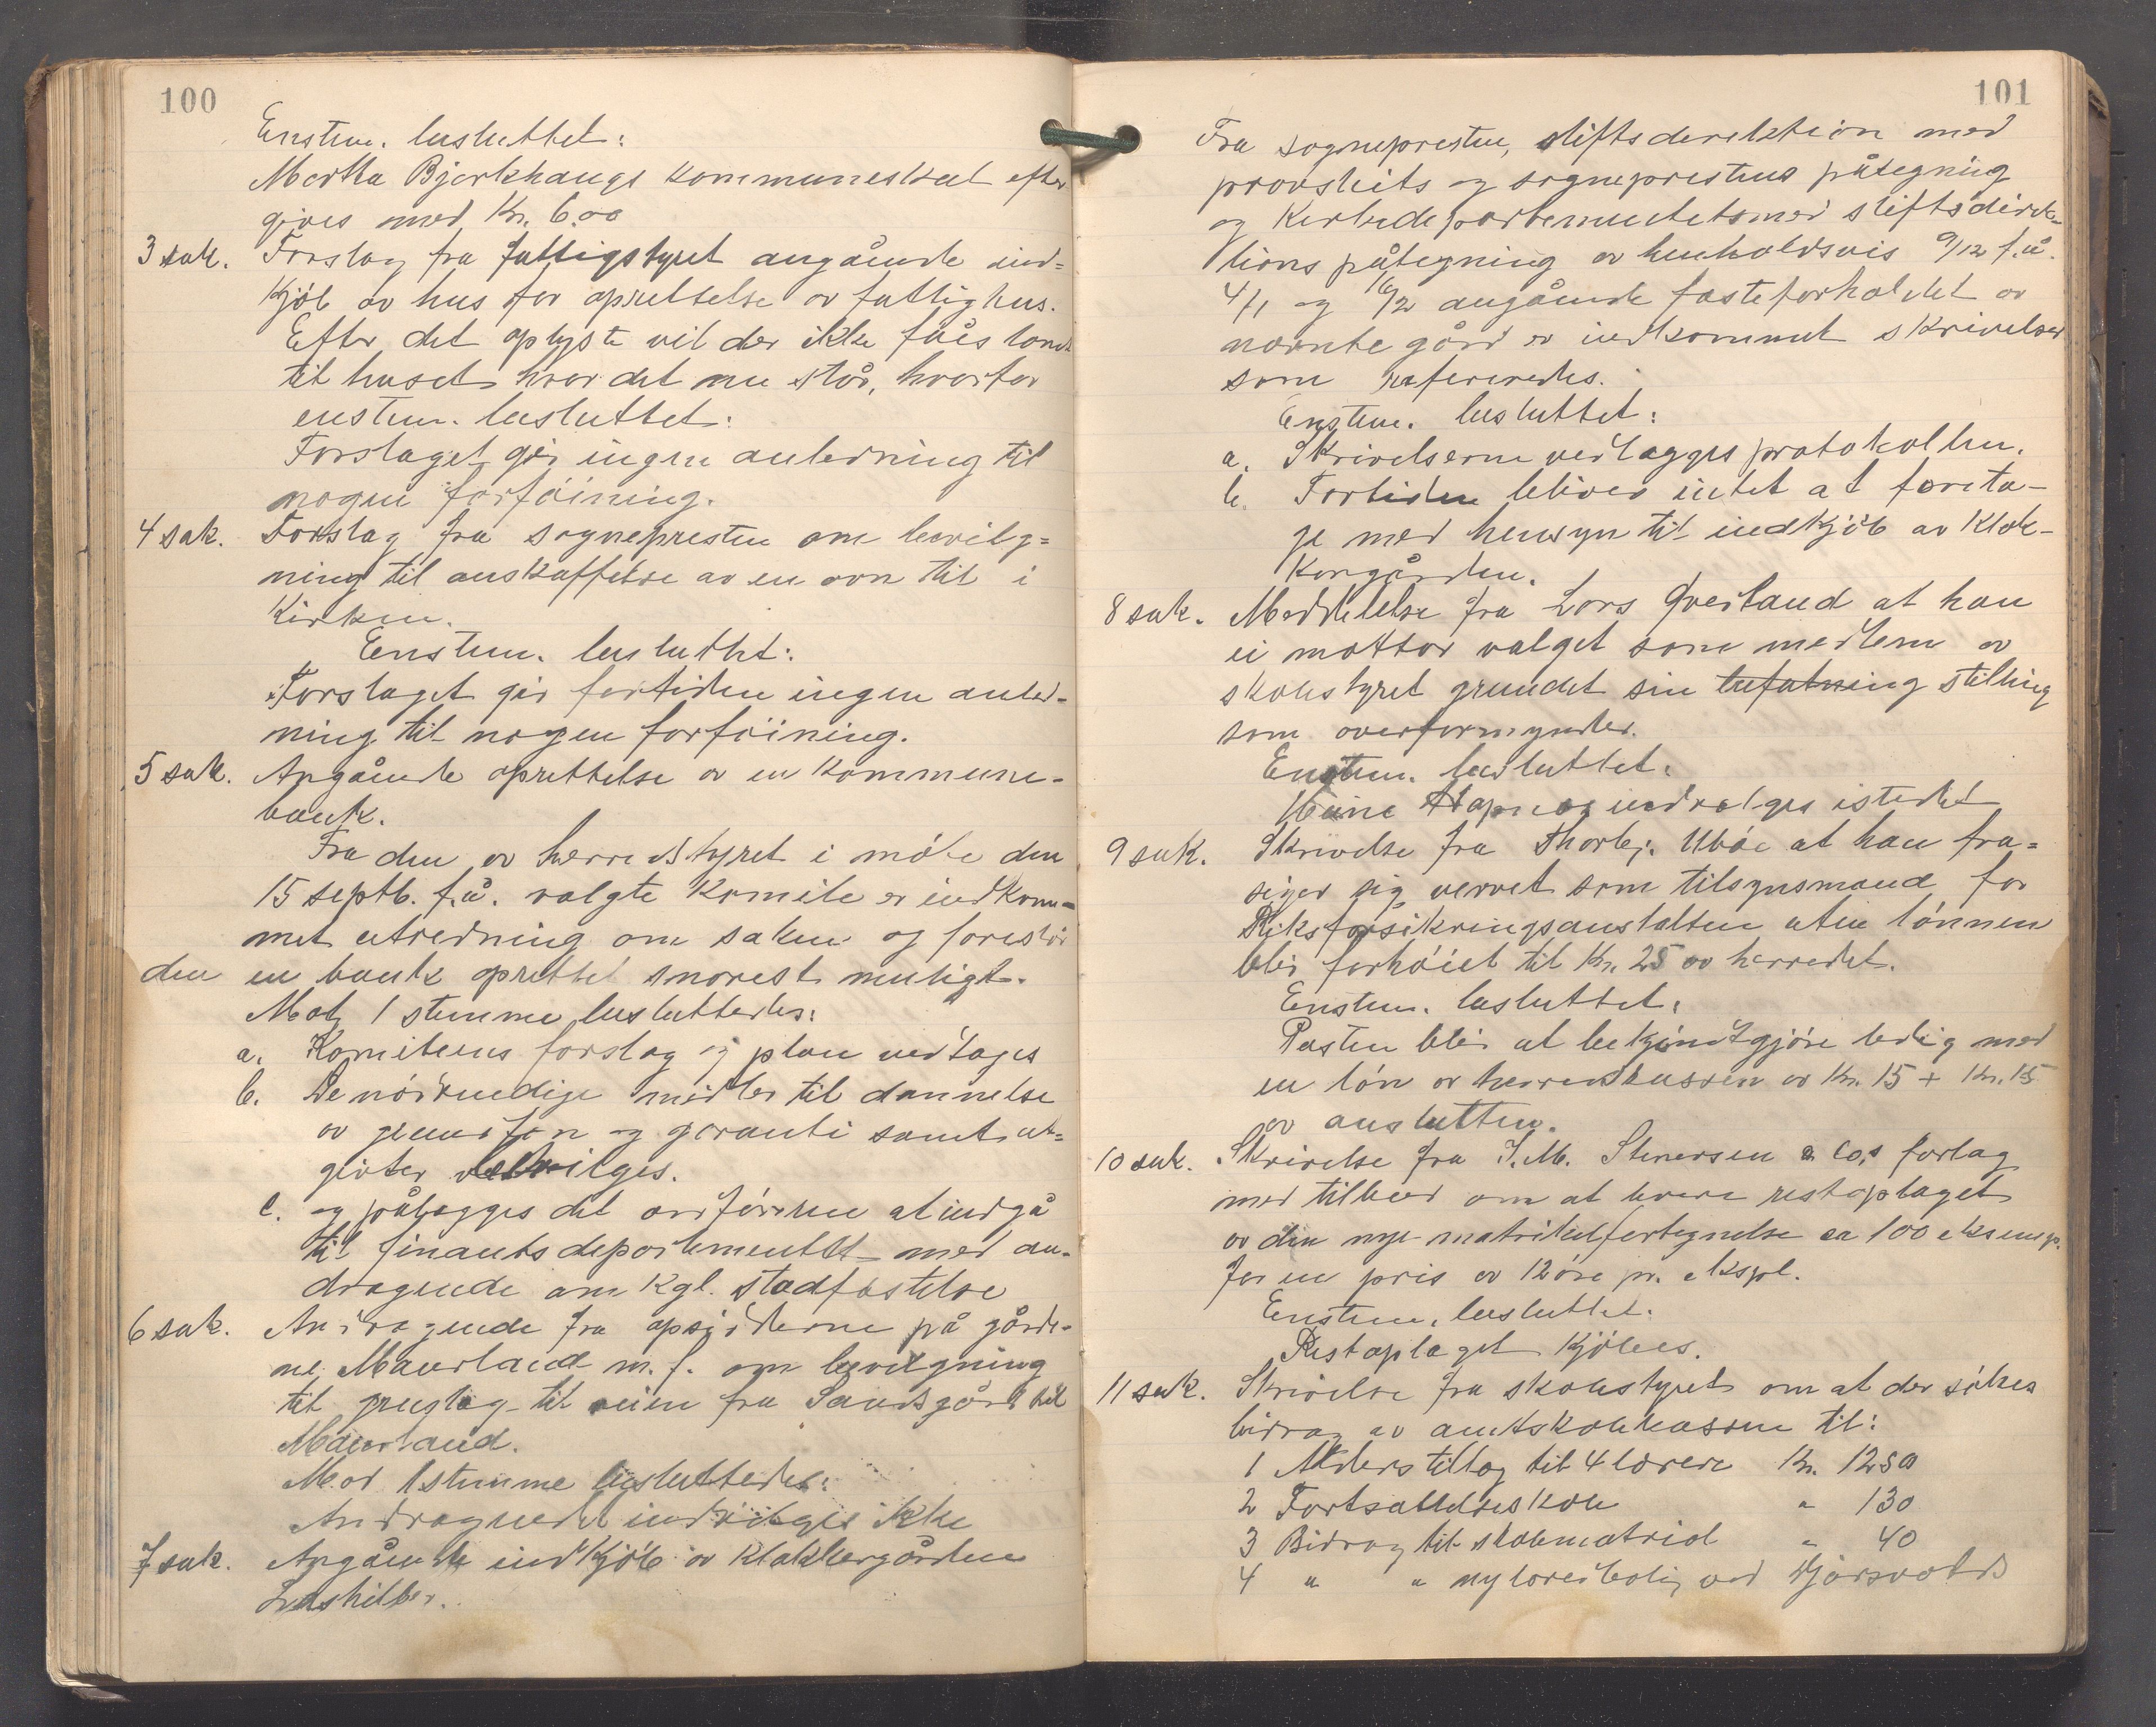 100
Enstem. besluttet:
Martha Bjorkhaugs kommuneskat efter
gives med Kr. 6.00
3 sak. Forslag fra fattigstyret angående ind=
kjøb av hus for oprettelse av fattighus.
Efter det oplyste vil der ikke fåes tomt
til huset hvor det nu står, hvorfor
enstem. besluttet:
Forslaget gir ingen anledning til
nogen forføining.
4 sak. Forslag fra sognepresten om bevilg=
ning til anskaffelse av en ovn til i
Kirken.
Enstem. besluttet:
Forslaget gir fortiden ingen anled-
ning til nogen forføining.
5 sak. Angående oprettelse av en kommune-
bank.
Fra den av herredstyret i møte den
15 septb. f.å. valgte komite er indkom=
met utredning om saken og foreslår
den en bank oprettet snarest muligt.
Mot 1 stemme besluttedes:
a. Komiteens forslag og plan vedtages
b. De nødvendige midler til dannelse
av grundfon og garanti samt ut=
givter bevilges.
c. og pålægges det ordføreren at indgå
til finantsdepartementet med an-
dragende om kgl. stadfæstelse
6 sak. Andragende fra opsidderne på gårde-
ne Maurland m. fl. om bevilgning
til grustag til veien fra Sandsgård til
Maurland.
Mod 1 stemme besluttedes:
Andragendet indvilges ikke
7 sak. Angående indkjøb av klokkergården
101
Fra sognepresten, stiftsdirektion med
provstiets og sogneprestens påtegning
og Kirkedepartementets med stiftsdirek=
tions påtegning av henholdsvis 9/12 f.å.
4/1 og 16/2 angående fæsteforholdet av
nævnte gård er indkommet skrivelser
som refereredes.
Enstem. besluttet:
a. Skrivelserne vedlægges protokollen.
b. Fortiden blives intet at foreta-
ge med hensyn til indkjøb av Klok-
kergården.
8 sak. Meddelelse fra Lars Qveiland at han
ei mottar valget som medlem av
skolestyret grundet sin befatning stilling
som overformynder.
Enstem. besluttet:
indvælges istedet
9 sak. Skrivelse fra Thorbj. Ubøe at han fra=
siger sig vervet som tilsynsmand for
Riksforsikringsanstalten uten lønnen
blir forhøiet til Kr. 25 av herredet.
Enstem. besluttet:
Posten blir at bekjendtgjøre ledig med
en løn av herredskassen av Kr. 15 + Kr. 15
av anstalten.
10 sak. Skrivelse fra J. M. Stenersen & Co,s forlag
med tilbud om at levere restoplaget
av den nye matrikelfortegnelse ca 100 eksemp.
for en pris av 12 øre pr. ekspl.
Enstem. besluttet:
Restoplaget kjøbes.
11 sak. Skrivelse fra skolestyret om at der søkes
bidrag av amtskolekassen til:
1 Alderstillæg til 4 lærere Kr. 1250
2 Fortsættelseskole " 130
3 Bidrag til skolematriel " 40
4 " " ny lærerbolig ved